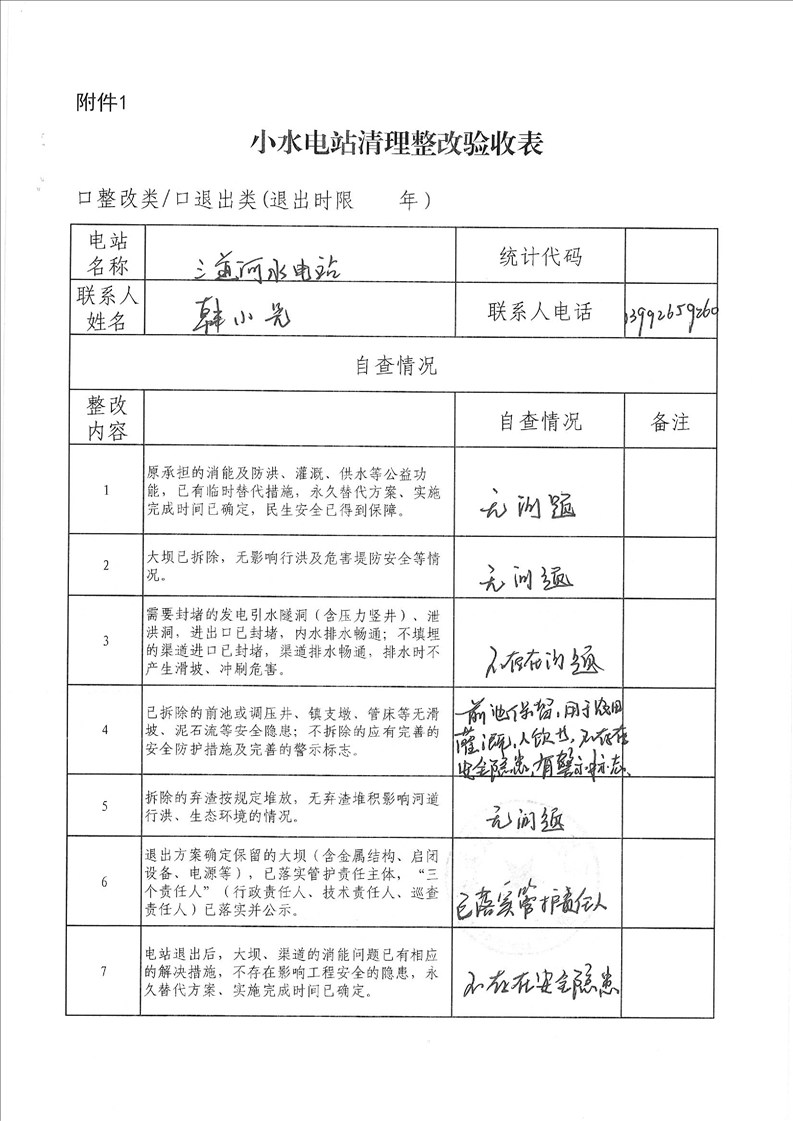 附件1
小水电站清理整改验收表
口整改类/口退出类(退出时限 年)
电站
名称
三道河水电站
统计代码
联系人
姓名
韩小
联系人电话
13992659260
自查情况
整改
内容
自查情况
备注
1
原承担的消能及防洪、灌溉、供水等公益功
能，已有临时替代措施，永久替代方案、实施
完成时间已确定，民生安全已得到保障。
无问题
2
大坝已拆除，无影响行洪及危害堤防安全等情
况。
无问题
3
需要封堵的发电引水隧洞（含压力竖井）、泄
洪洞，进出口已封堵，内水排水畅通；不填埋
的渠道进口已封堵，渠道排水畅通，排水时不
产生滑坡、冲刷危害。
不存在问题
4
已拆除的前池或调压井、镇支墩、管床等无滑
坡、泥石流等安全隐患；不拆除的应有完善的
安全防护措施及完善的警示标志。
前池保留，用于农田
灌溉，人饮，不存在
安全隐患，有警示标志、
5
拆除的弃渣按规定堆放，无弃渣堆积影响河道
行洪、生态环境的情况。
无问题
6
退出方案确定保留的大坝（含金属结构、启闭
设备、电源等），已落实管护责任主体，“三
个责任人”（行政责任人、技术责任人、巡查
责任人）已落实并公示。
已落实管护责任人
7
电站退出后，大坝、渠道的消能问题已有相应
的解决措施，不存在影响工程安全的隐患，永
久替代方案、实施完成时间已确定。
不存在安全隐患